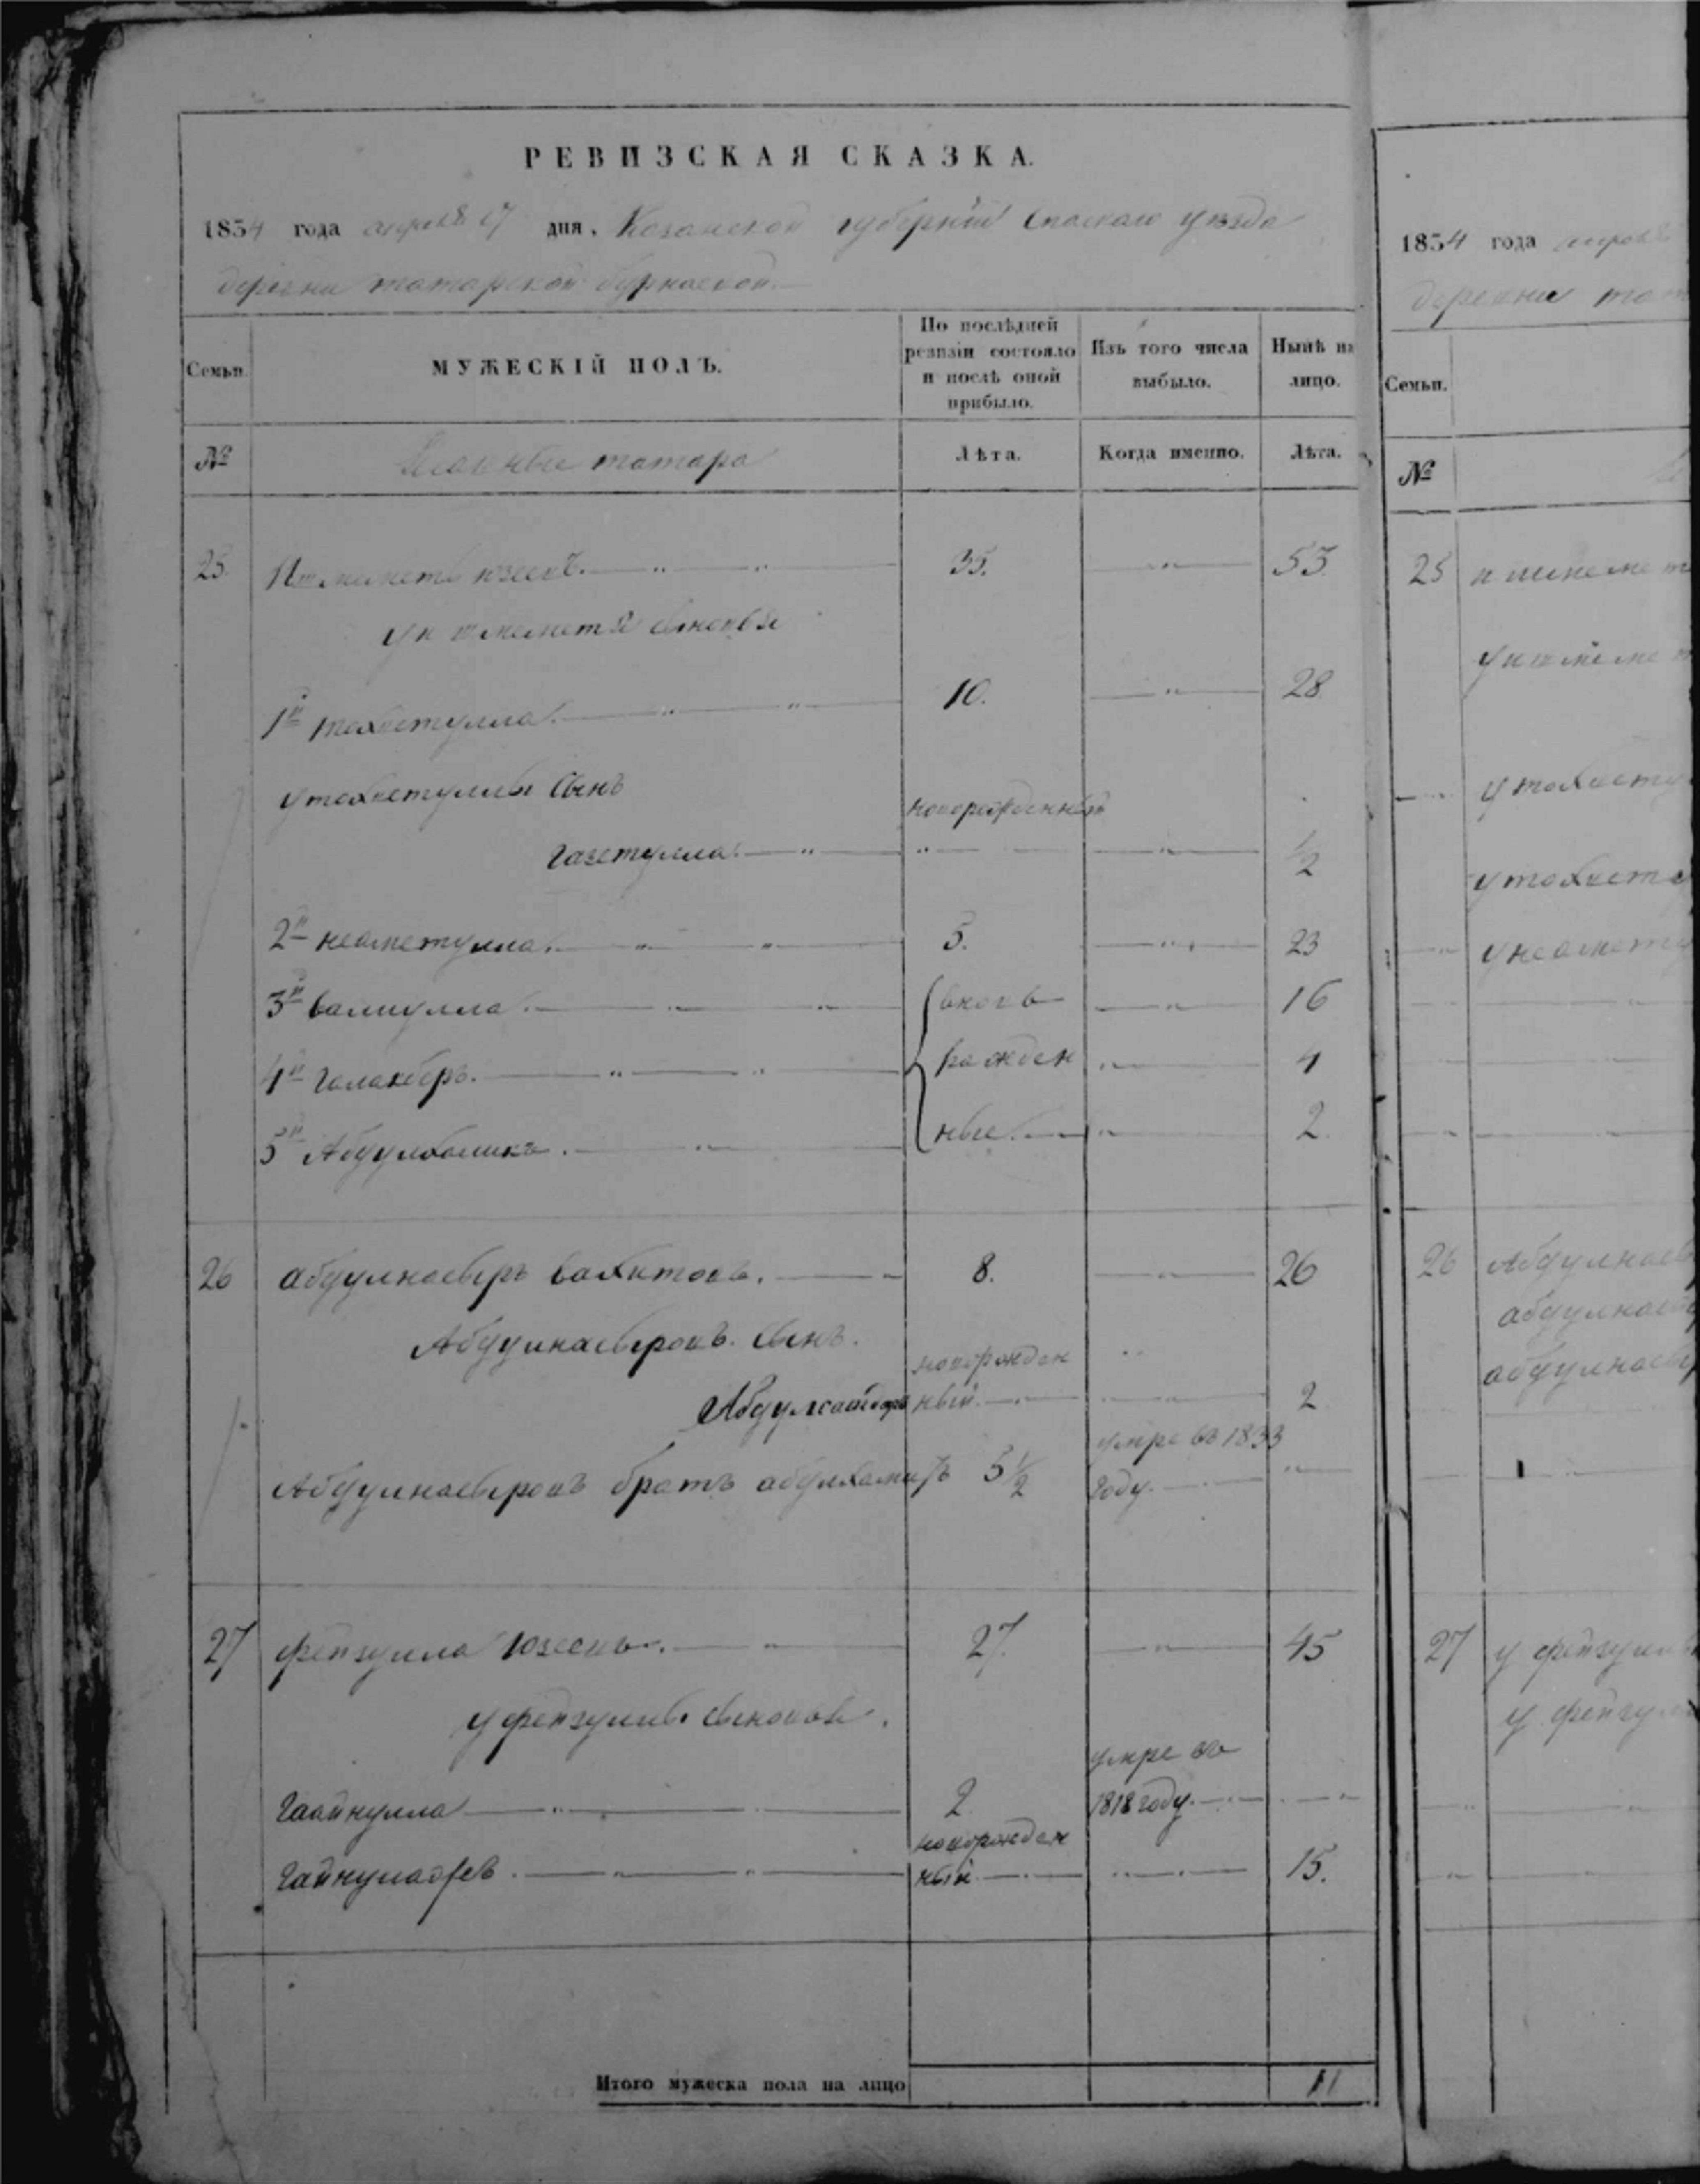 РЕВИЗСКАЯ СКАЗКА.
1834 года апреля 17 дня, Казанской губернии Спаскаго уезда
деревни татарской бурнаевской
Семьи. МУЖЕСКІЙ ПОЛЪ. По послѣдней ревизіи состояло и послѣ оной прибыло. Изъ того числа выбыло. Нынѣ на лицо.
№ татара Лѣта. Когда именно. Лѣта.
25 юзеевъ. 35. 53
сыновья
1й тохветулла. 10. 28
у тохветуллы сынъ новорожденный
газетулла. ½
2й неаметулла. 5. 23
3й валиулла. вновь 16
4й галакберъ. рожден 4
5й Абдулхаликъ. ные 2
26 абдулнасыръ вахитовъ. 8. 26
Абдулнасыровъ сынъ. новорожден
Абдулсатаръ ный 2
Абдулнасыровъ братъ 5½ умре въ 1833 году
27 фейзулла юзеевъ. 27. 45
у фейзуллы сыновья.
Гайнулла 2 умре въ 1818 году
новорожден
ный 15.
Итого мужеска пола на лицо 11
1834 года апреля
деревни тат
Семьи.
№
25
у
у тохвету
у тохвету
у неамету
26 Абдулнасы
абдулнасы
абдулнасы
27 у фейзулл
у фейзул